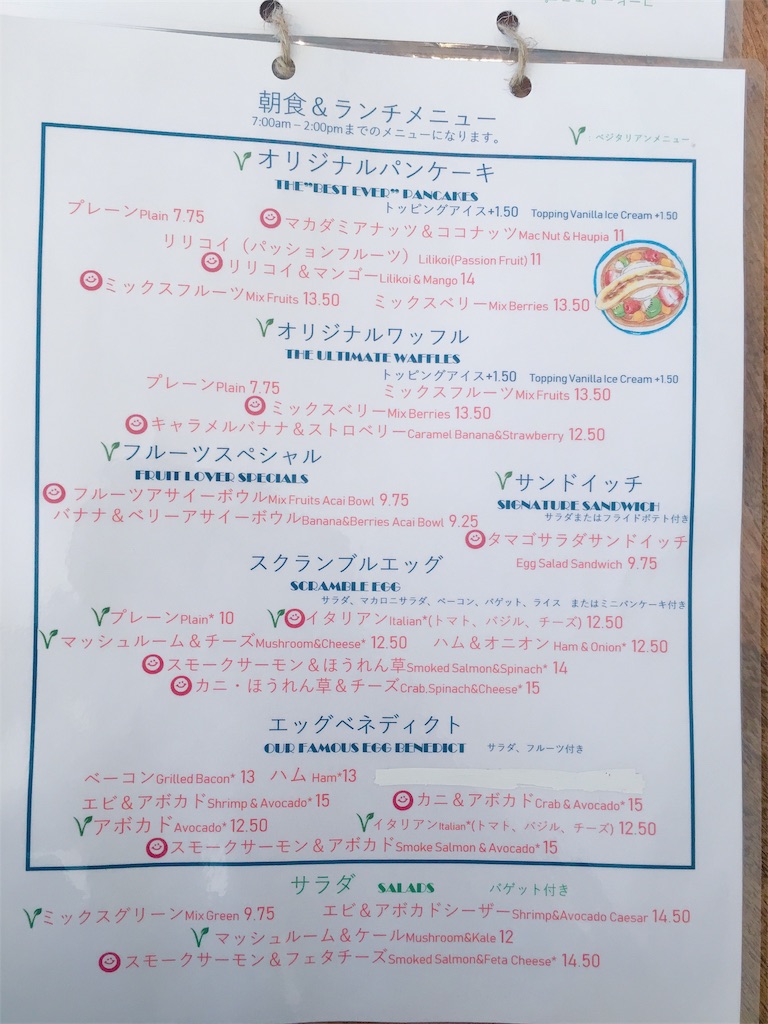 朝食＆ランチメニュー
7:00am－2:00pmまでのメニューになります。
ベジタリアンメニュー。
オリジナルパンケーキ
THE"BEST EVER" PANCAKES
トッピングアイス+1.50 Topping Vanilla Ice Cream +1.50
プレーンPlain 7.75
マカダミアナッツ＆ココナッツMac Nut & Haupia 11
リリコイ（パッションフルーツ）Lilikoi(Passion Fruit) 11
リリコイ＆マンゴーLilikoi & Mango 14
ミックスフルーツMix Fruits 13.50 ミックスベリーMix Berries 13.50
オリジナルワッフル
THE ULTIMATE WAFFLES
トッピングアイス+1.50 Topping Vanilla Ice Cream +1.50
プレーンPlain 7.75 ミックスフルーツMix Fruits 13.50
ミックスベリーMix Berries 13.50
キャラメルバナナ＆ストロベリーCaramel Banana&Strawberry 12.50
フルーツスペシャル
FRUIT LOVER SPECIALS
フルーツアサイーボウルMix Fruits Acai Bowl 9.75
バナナ＆ベリーアサイーボウルBanana&Berries Acai Bowl 9.25
サンドイッチ
SIGNATURE SANDWICH
サラダまたはフライドポテト付き
タマゴサラダサンドイッチ
Egg Salad Sandwich 9.75
スクランブルエッグ
SCRAMBLE EGG
サラダ、マカロニサラダ、ベーコン、バゲット、ライス またはミニパンケーキ付き
プレーンPlain* 10 イタリアンItalian*(トマト、バジル、チーズ) 12.50
マッシュルーム＆チーズMushroom&Cheese* 12.50 ハム＆オニオン Ham & Onion* 12.50
スモークサーモン＆ほうれん草Smoked Salmon&Spinach* 14
カニ・ほうれん草＆チーズCrab,Spinach&Cheese* 15
エッグベネディクト
OUR FAMOUS EGG BENEDICT サラダ、フルーツ付き
ベーコンGrilled Bacon* 13 ハム Ham*13
エビ＆アボカドShrimp & Avocado* 15 カニ＆アボカドCrab & Avocado* 15
アボカドAvocado* 12.50 イタリアンItalian*(トマト、バジル、チーズ) 12.50
スモークサーモン＆アボカドSmoke Salmon & Avocado* 15
サラダ SALADS バゲット付き
ミックスグリーンMix Green 9.75 エビ＆アボカドシーザーShrimp&Avocado Caesar 14.50
マッシュルーム＆ケールMushroom&Kale 12
スモークサーモン＆フェタチーズSmoked Salmon&Feta Cheese* 14.50